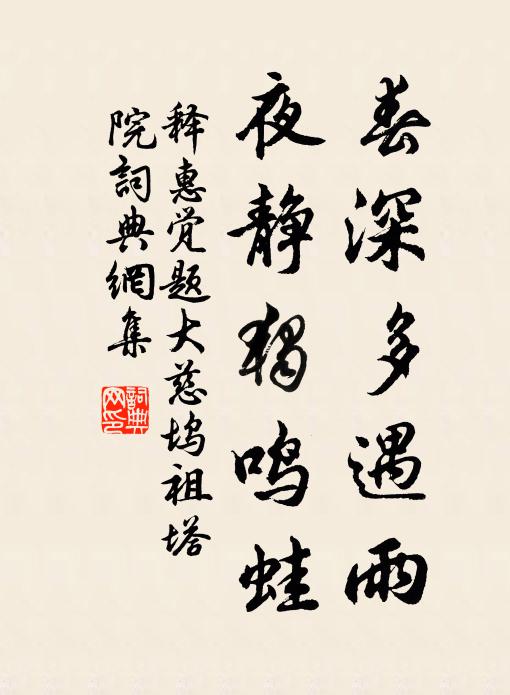 春深多遇雨
夜静独鸣蛙
释惠觉题大慈坞祖塔
院詞典網集
詞典
网印